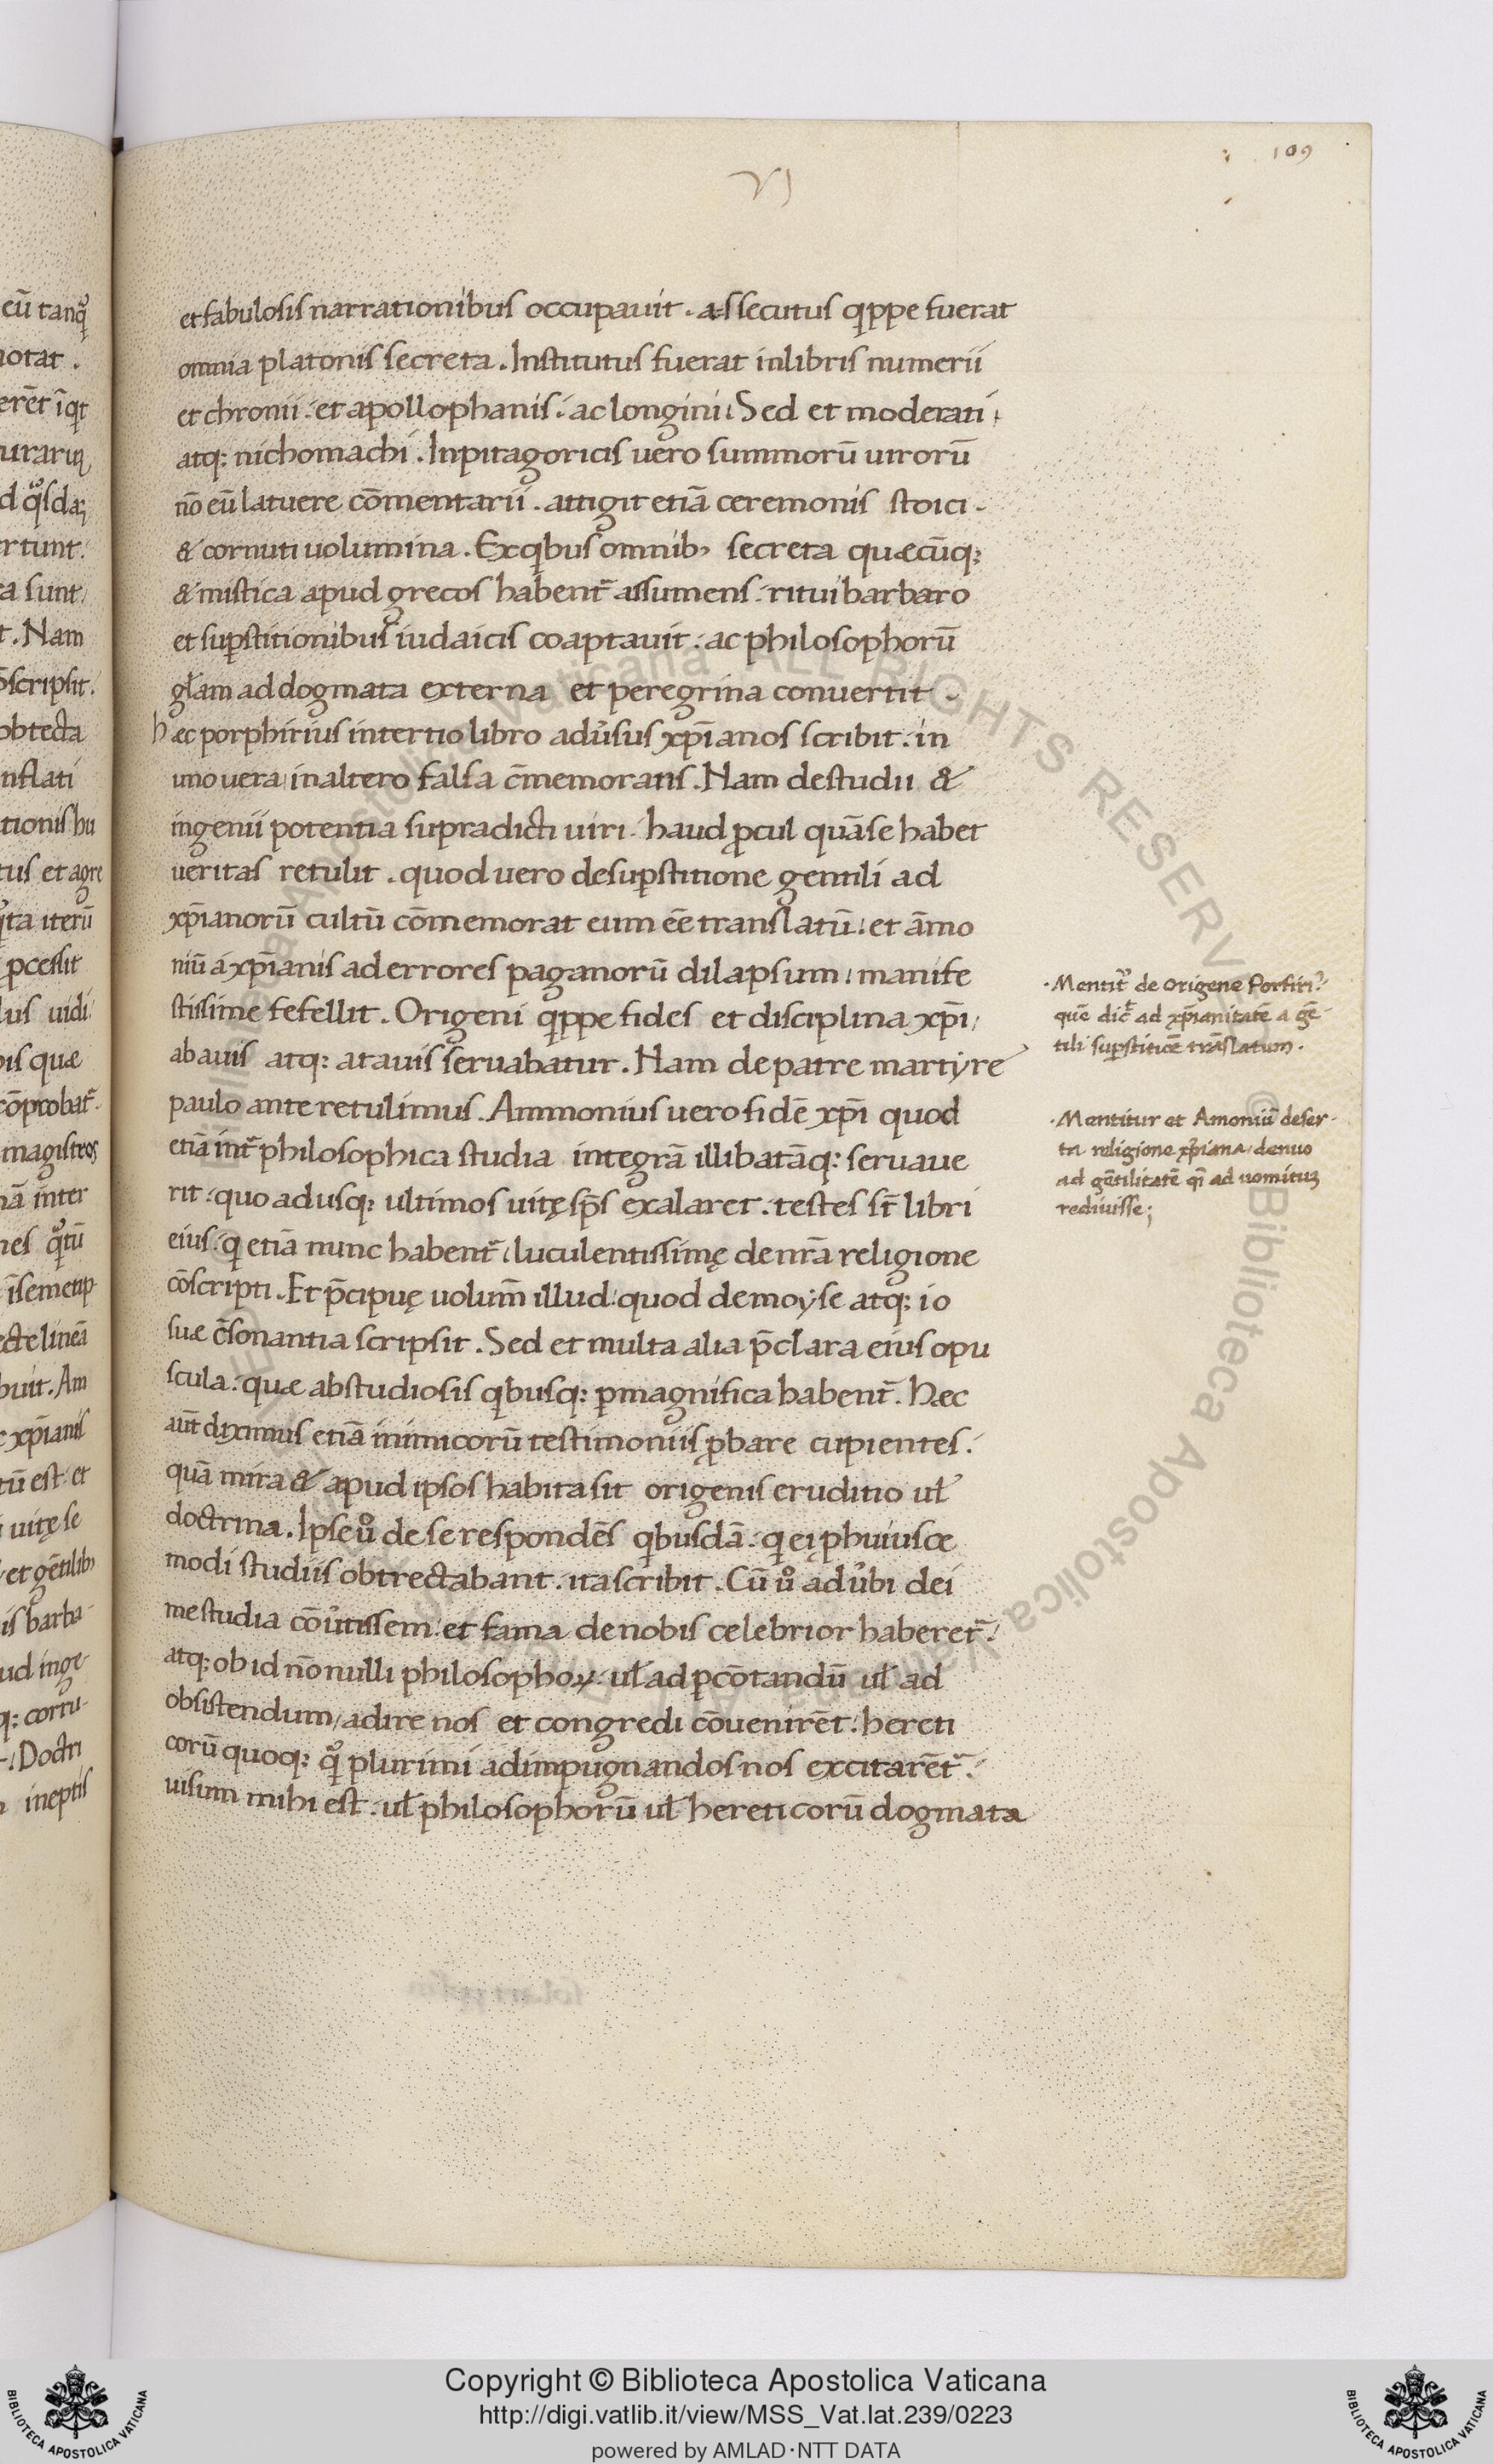 109
VI
et fabulosis narrationibus occupauit . assecutus qippe fuerat
omnia platonis secreta . Institutus fuerat in libris numerii
et chronii . et apollophanis . ac longini . Sed et moderati
atq: nichomachi . In pitagoricis uero summorū uirorū
nō eū latuere cōmentarii . attigit etiā ceremonis stoici .
& cornuti uolumina . Ex qibus omnib; secreta quæcūq:
& mistica apud grecos habent᷑ assumens . ritui barbaro
et supstitionibus iudaicis coaptauit . ac philosophorū
głam ad dogmata externa et peregrina conuertit .
hæc porphirius in tertio libro adu̓sus xp̄ianos scribit . in
uno uera in altero falsa c̄memorans . Nam de studii &
ingenii potentia supradicti uiri . haud pcul quā se habet
ueritas retulit . quod uero de supstitione gentili ad
xp̄ianorū cultū cōmemorat eum ēe translatū . et āmo
niū á xp̄ianis ad errores paganorū dilapsum . manife
stissime fefellit . Origeni qippe fides et disciplina xp̄i
ab auis atq: atauis seruabatur . Nam de patre martyre
paulo ante retulimus . Ammonius uero fidē xp̄i quod
etiā int᷑ philosophica studia integrā illibatāq: seruaue
rit . quo adusq: ultimos uitę sp̄s exalaret . testes st̄ libri
eius . qi etiā nunc habent᷑ . luculentissimę de nr̄a religione
cōscripti . Et p̄cipuę uolum̄ illud . quod de moyse atq: io
suæ c̄sonantia scripsit . Sed et multa alia p̄clara eius opu
scula . quæ ab studiosis qibusq: pmagnifica habent᷑ . Hæc
aūt diximus etiā inimicorū testimoniis pbare cupientes .
quā mira & apud ipsos habita sit origenis eruditio uł
doctrina . Ipse uº de se respondēs qibusdā . qi ei p huiusce
modi studiis obtrectabant . ita scribit . Cū uº adu̓bi dei
me studia cōu̓tissem . et fama de nobis celebrior haberet᷑ .
atq: ob id nōnulli philosophoꝝ . uł ad pcōtandū uł ad
obsistendum adire nos et congredi cōuenirēt . hereti
corū quoq: qº plurimi ad impugnandos nos excitarēt᷑ .
uisum mihi est . uł philosophorū uł hereticorū dogmata
. Mentit᷑ de Origene Porfiri᷒
quē dic̄ ad xp̄ianitatē a gē
tili supstitiōe trāslatum .
. Mentitur et Amoniū deser
ta religione xp̄iana denuo
ad gētilitatē qi ad uomituꝫ
rediuisse ;
eū tanqº
notat .
erēt īqit
d qºsdaꝫ
rtunt .
a sunt
t . Nam
ōscripsit .
obtecta
nflati
tionis hu
tus et agre
ta iterū
pcessit
lus uidi
is quæ
cōprobat᷑
magistros
ā inter
nes qºtū
īsemetip
ecte lineā
buit . Am
xp̄ianis
tū est . et
uitę se
et gētilib;
is barba
ud inge
q: corru
. Doctri
ineptis
Copyright © Biblioteca Apostolica Vaticana
http://digi.vatlib.it/view/MSS_Vat.lat.239/0223
powered by AMLAD·NTT DATA
BIBLIOTECA APOSTOLICA VATICANA
BIBLIOTECA APOSTOLICA VATICANA